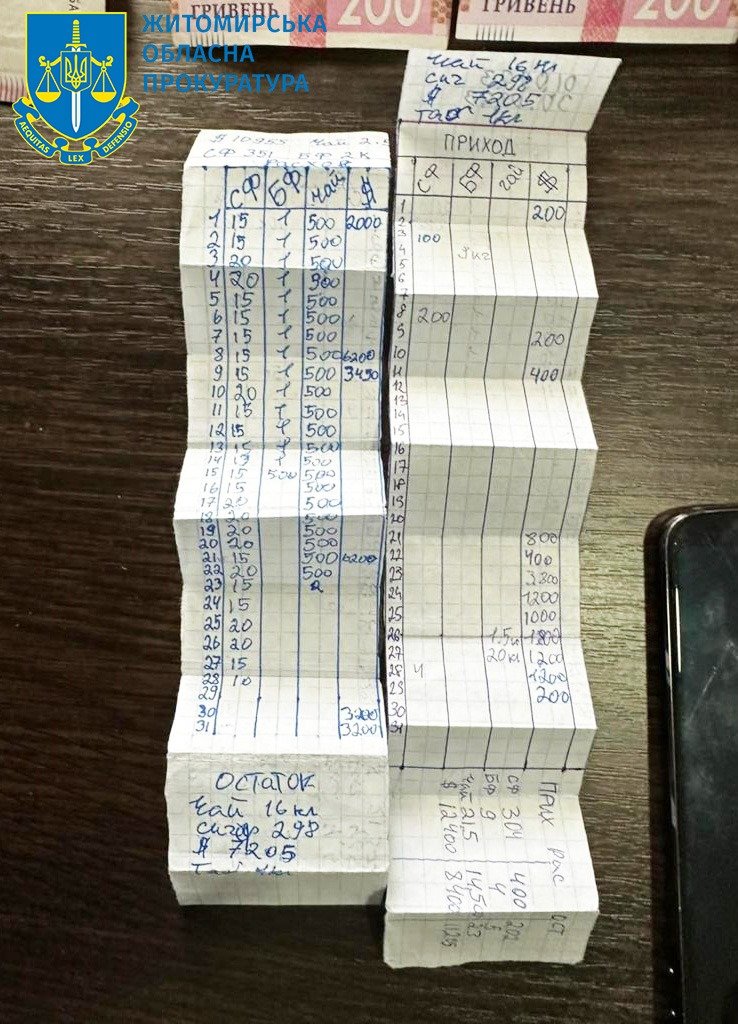 ГРИВЕНЬ 200
ГРИВЕНЬ 200
ЖИТОМИРСЬКА
ОБЛАСНА
ПРОКУРАТУРА
AEQUITAS LEX DEFENSIO
$ 10955 Чай
СФ 351 БФ 2 К
СФ БФ Чай $
1 15 1 500 2000
2 15 1 500
3 20 1 500
4 20 1 900
5 15 1 500
6 15 1 500
7 15 1 500
8 15 1 500 6200
9 15 1 500 3450
10 20 1 500
11 15 1 500
12 15 1 500
13 15 1 500
14 15 1 500
15 15 500 500
16 15 500
17 20 500
18 20 500
19 20 500
20 20 500
21 15 500 6200
22 20 500
23 15 2
24 15
25 20
26 20
27 15
28 10
29
30 3200
31 3200
ОСТАТОК
Чай 16 кл
сигар 298
$ 7205
Чай 16 кл
сиг 298
$ 7205
1кг
ПРИХОД
СФ БФ чай $
1 200
2
3 100
4
5
6
7
8 200
9 200
10
11 400
12
13
14
15
16
17
18
19
20
21 800
22 400
23
24 1200
25 1000
26 1800
27 20 кг 1200
28 Ч 1200
29 200
30
31
ПРИХ рас ост
СФ 304 400
БФ 9 4
Чай 215
$ 12400 8400